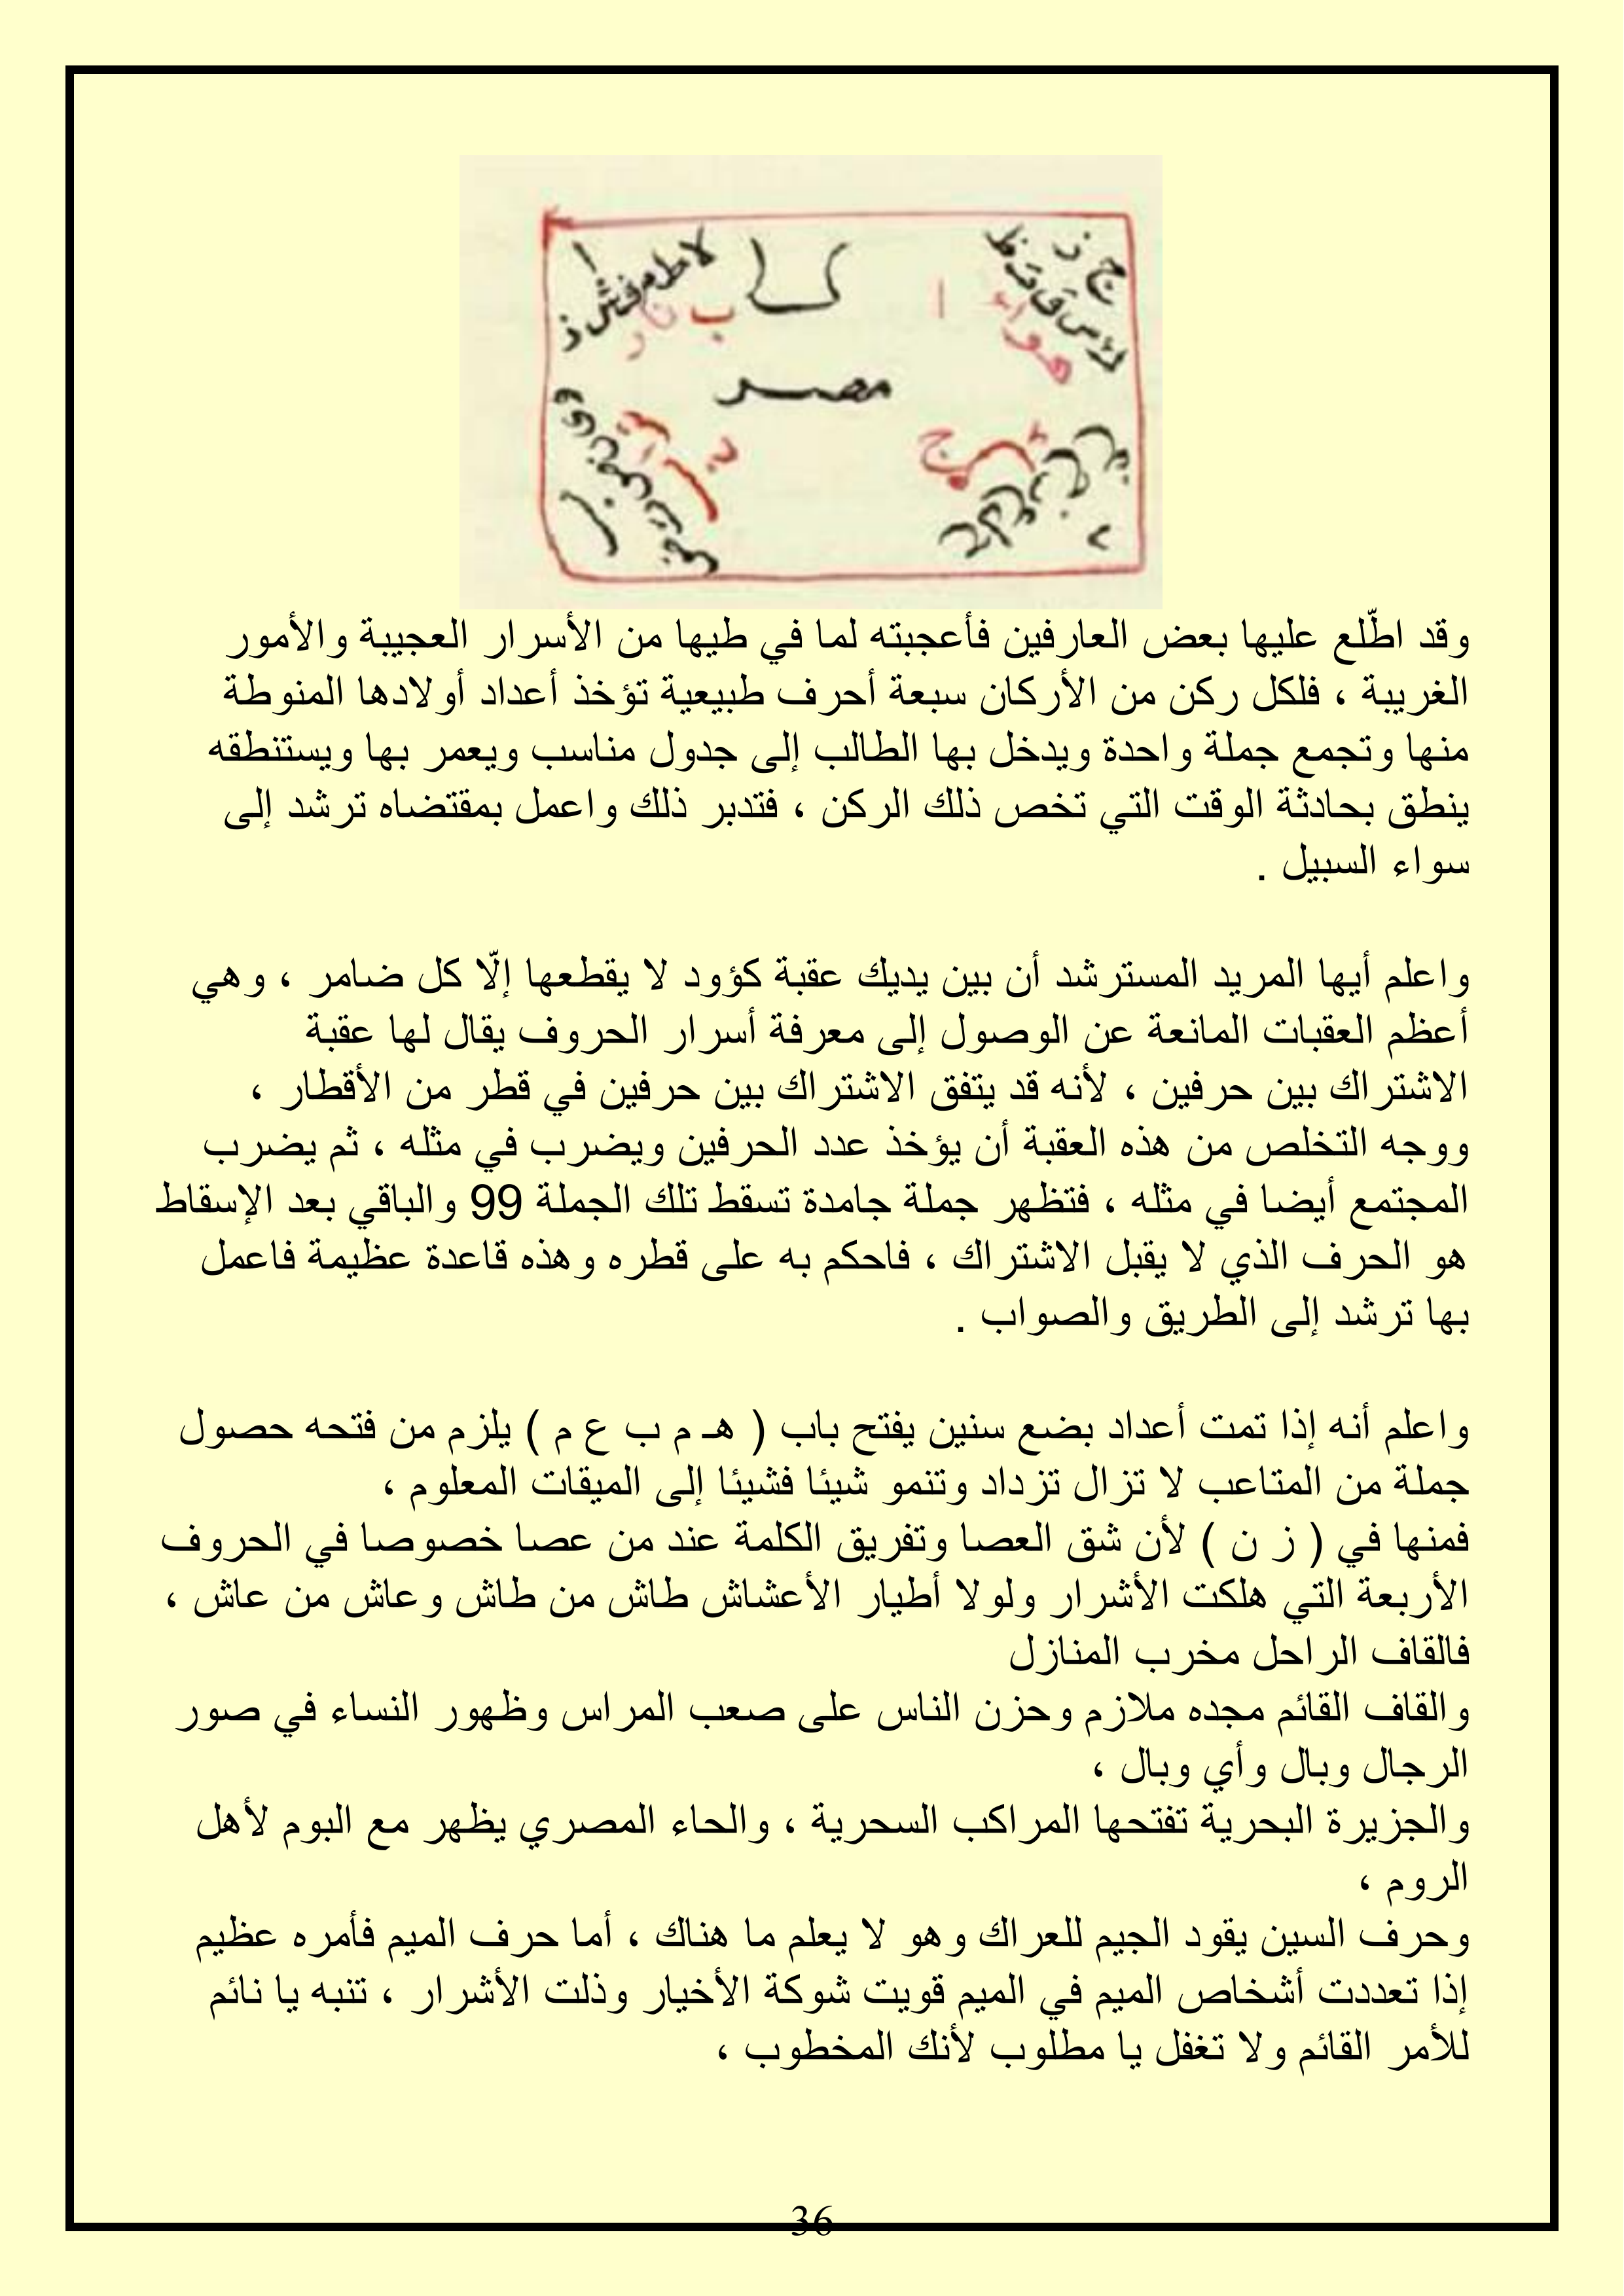 مصر
وقد اطّلع عليها بعض العارفين فأعجبته لما في طيها من الأسرار العجيبة والأمور
الغريبة ، فلكل ركن من الأركان سبعة أحرف طبيعية تؤخذ أعداد أولادها المنوطة
منها وتجمع جملة واحدة ويدخل بها الطالب إلى جدول مناسب ويعمر بها ويستنطقه
ينطق بحادثة الوقت التي تخص ذلك الركن ، فتدبر ذلك واعمل بمقتضاه ترشد إلى
سواء السبيل .
واعلم أيها المريد المسترشد أن بين يديك عقبة كؤود لا يقطعها إلّا كل ضامر ، وهي
أعظم العقبات المانعة عن الوصول إلى معرفة أسرار الحروف يقال لها عقبة
الاشتراك بين حرفين ، لأنه قد يتفق الاشتراك بين حرفين في قطر من الأقطار ،
ووجه التخلص من هذه العقبة أن يؤخذ عدد الحرفين ويضرب في مثله ، ثم يضرب
المجتمع أيضا في مثله ، فتظهر جملة جامدة تسقط تلك الجملة 99 والباقي بعد الإسقاط
هو الحرف الذي لا يقبل الاشتراك ، فاحكم به على قطره وهذه قاعدة عظيمة فاعمل
بها ترشد إلى الطريق والصواب .
واعلم أنه إذا تمت أعداد بضع سنين يفتح باب ( هـ م ب ع م ) يلزم من فتحه حصول
جملة من المتاعب لا تزال تزداد وتنمو شيئا فشيئا إلى الميقات المعلوم ،
فمنها في ( ز ن ) لأن شق العصا وتفريق الكلمة عند من عصا خصوصا في الحروف
الأربعة التي هلكت الأشرار ولولا أطيار الأعشاش طاش من طاش وعاش من عاش ،
فالقاف الراحل مخرب المنازل
والقاف القائم مجده ملازم وحزن الناس على صعب المراس وظهور النساء في صور
الرجال وبال وأي وبال ،
والجزيرة البحرية تفتحها المراكب السحرية ، والحاء المصري يظهر مع البوم لأهل
الروم ،
وحرف السين يقود الجيم للعراك وهو لا يعلم ما هناك ، أما حرف الميم فأمره عظيم
إذا تعددت أشخاص الميم في الميم قويت شوكة الأخيار وذلت الأشرار ، تنبه يا نائم
للأمر القائم ولا تغفل يا مطلوب لأنك المخطوب ،
36